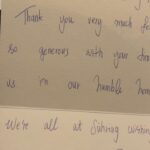 Thank you very much fo
so generous with your
us in our humble hom
We're all at